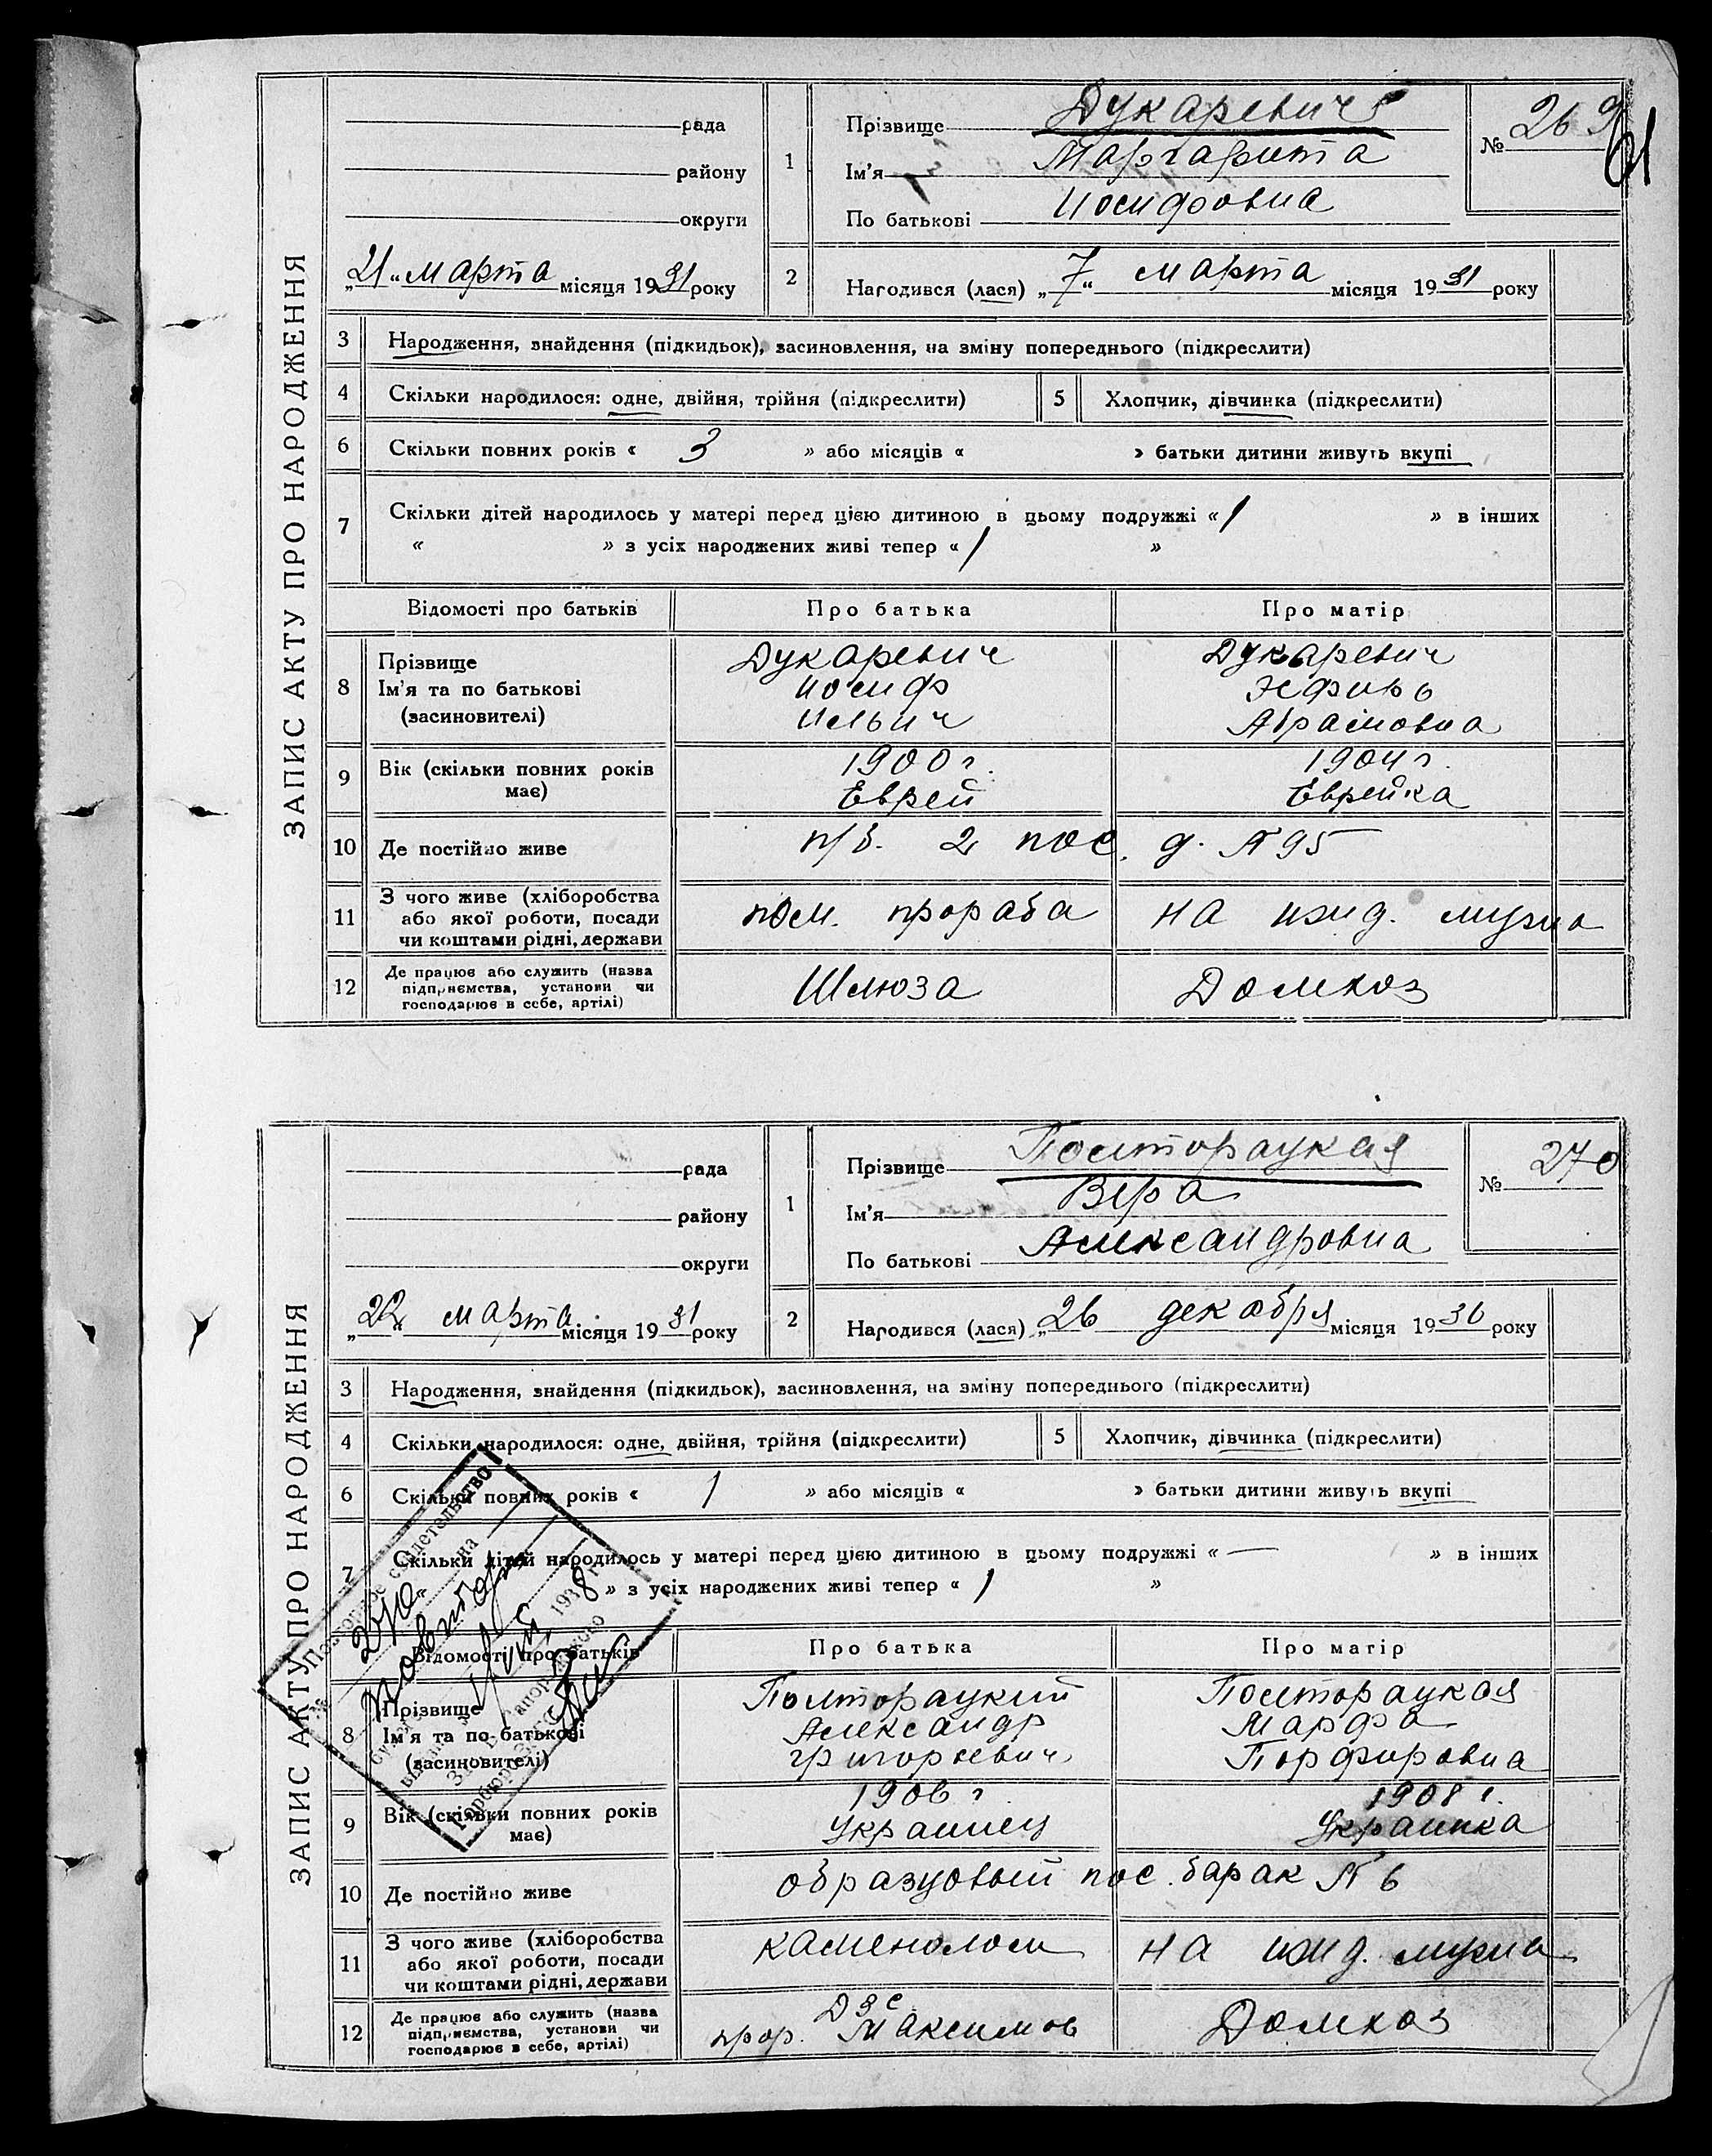 ЗАПИС АКТУ ПРО НАРОДЖЕННЯ
рада
району
округи
„21“ марта місяця 1931 року
1
Прізвище Дукаревич
Ім'я Маргарита
По батькові Иосифовна
№ 269
61
2
Народився (лася) „7“ марта місяця 1931 року
3 Народження, знайдення (підкидьок), засиновлення, на зміну попереднього (підкреслити)
4 Скільки народилося: одне, двійня, трійня (підкреслити) 5 Хлопчик, дівчинка (підкреслити)
6 Скільки повних років « 3 » або місяців « » батьки дитини живуть вкупі
7 Скільки дітей народилось у матері перед цією дитиною в цьому подружжі « 1 » в інших
« » з усіх народжених живі тепер « 1 »
Відомості про батьків Про батька Про матір
8 Прізвище Дукаревич Дукаревич
Ім'я та по батькові Иосиф
(засиновителі) Ильич Абрамовна
9 Вік (скільки повних років має) 1900 г. 1904 г.
Еврей Еврейка
10 Де постійно живе п/б. 2 пос. д. № 95
11 З чого живе (хліборобства
або якої роботи, посади
чи коштами рідні, держави
пом. прораба на ижд. мужа
12 Де працює або служить (назва
підприємства, установи чи
господарює в себе, артілі)
Шлюза Домхоз
ЗАПИС АКТУ ПРО НАРОДЖЕННЯ
рада
району
округи
„22 марта місяця 1931 року
1
Прізвище Полторацкая
Ім'я Вера
По батькові Александровна
№ 270
2
Народився (лася) „26 декабря місяця 1930 року
3 Народження, знайдення (підкидьок), засиновлення, на зміну попереднього (підкреслити)
4 Скільки народилося: одне, двійня, трійня (підкреслити) 5 Хлопчик, дівчинка (підкреслити)
6 Скільки повних років « 1 » або місяців « » батьки дитини живуть вкупі
7 Скільки дітей народилось у матері перед цією дитиною в цьому подружжі « — » в інших
« » з усіх народжених живі тепер « 1 »
Повторное свидетельство
№ 270 на
Відомості про батьків Про батька Про матір
8 Прізвище Полторацкий Полторацкая
Ім'я та по батькові Александр Марфа
(засиновителі) Григорьевич Порфировна
9 Вік (скільки повних років має) 1906 г 1908 г.
Украинец Украинка
10 Де постійно живе образцовый пос. барак № 6
11 З чого живе (хліборобства
або якої роботи, посади
чи коштами рідні, держави
каменолом на ижд. мужа
12 Де працює або служить (назва
підприємства, установи чи
господарює в себе, артілі)
ДЗС
прор. Максимов Домхоз